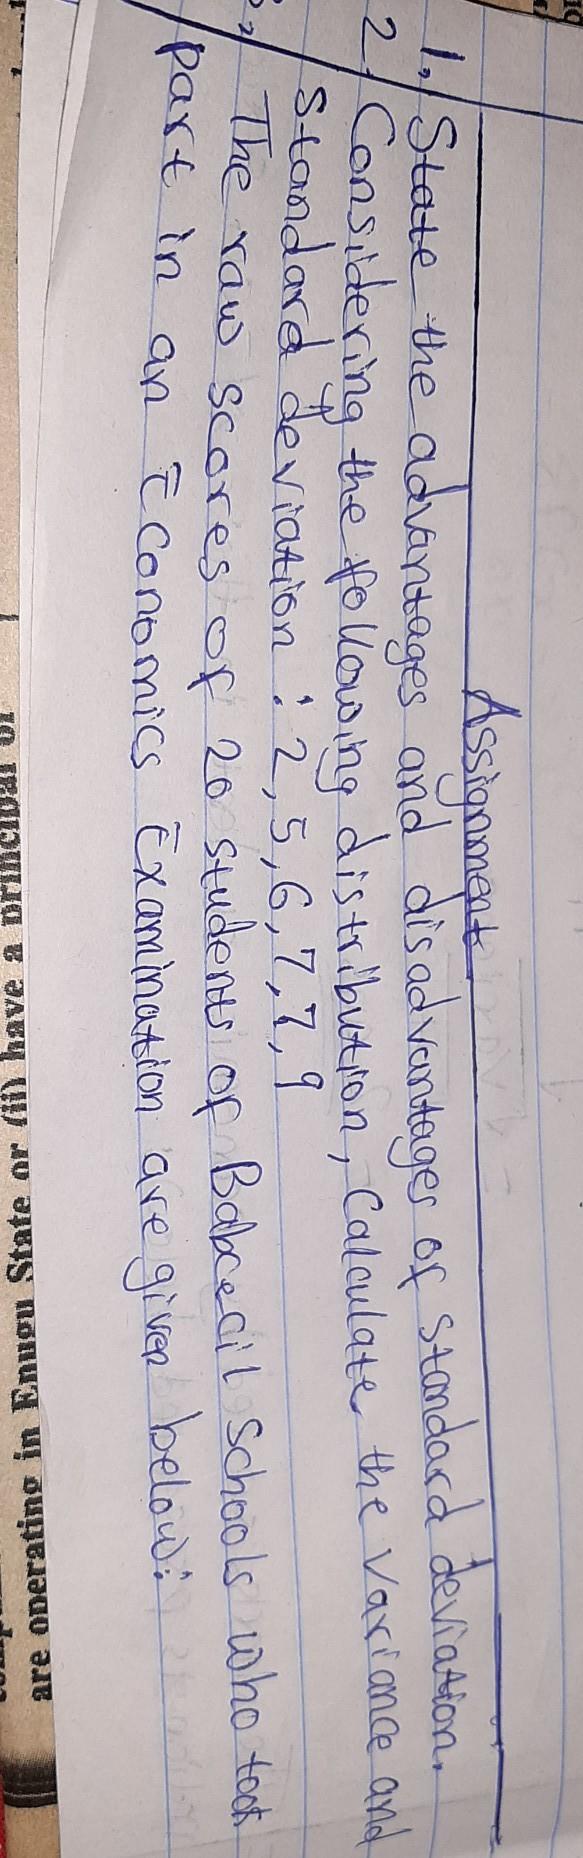 Assignment
1. State the advantages and disadvantages of standard deviation.
2. Considering the following distribution, Calculate the variance and
standard deviation : 2, 5, 6, 7, 7, 9
The raw scores of 20 students of Babcecil Schools who took
part in an Economics Examination are given below:
are operating in Enugu State or (ii) have a principal of